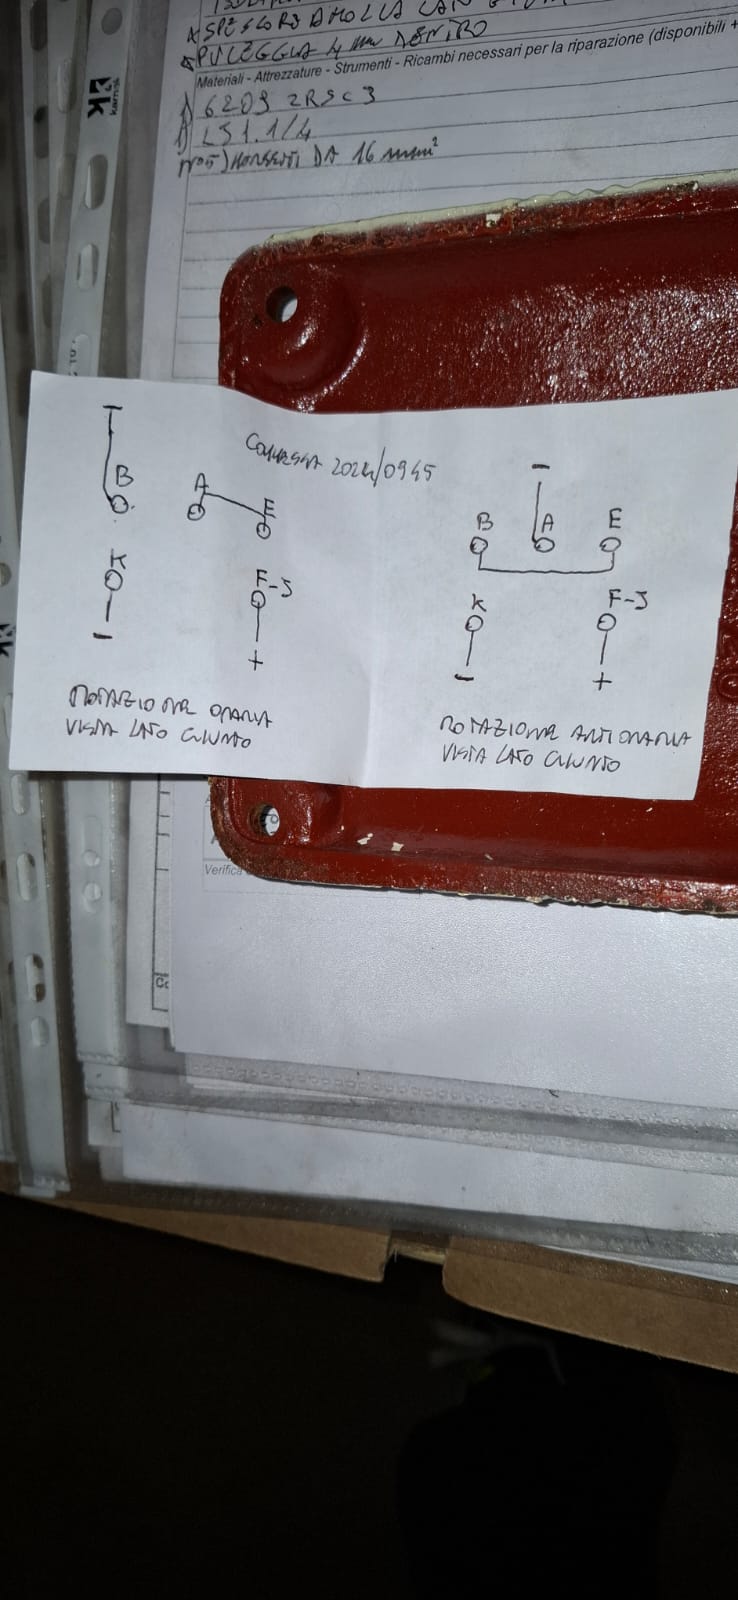 PULEGGIA 4 mm DENTRO
Materiali - Attrezzature - Strumenti - Ricambi necessari per la riparazione (disponibili +
6209 2RSC3
LS1.1/4
N°5) MORSETTI DA 16 mm²
karnak
COMMESSA 2024/0945
-
B
A
E
K
F-J
-
+
ROTAZIONE ORARIA
VISTA LATO GIUNTO
-
B
A
E
K
F-J
-
+
ROTAZIONE ANTIORARIA
VISTA LATO GIUNTO
Verifica